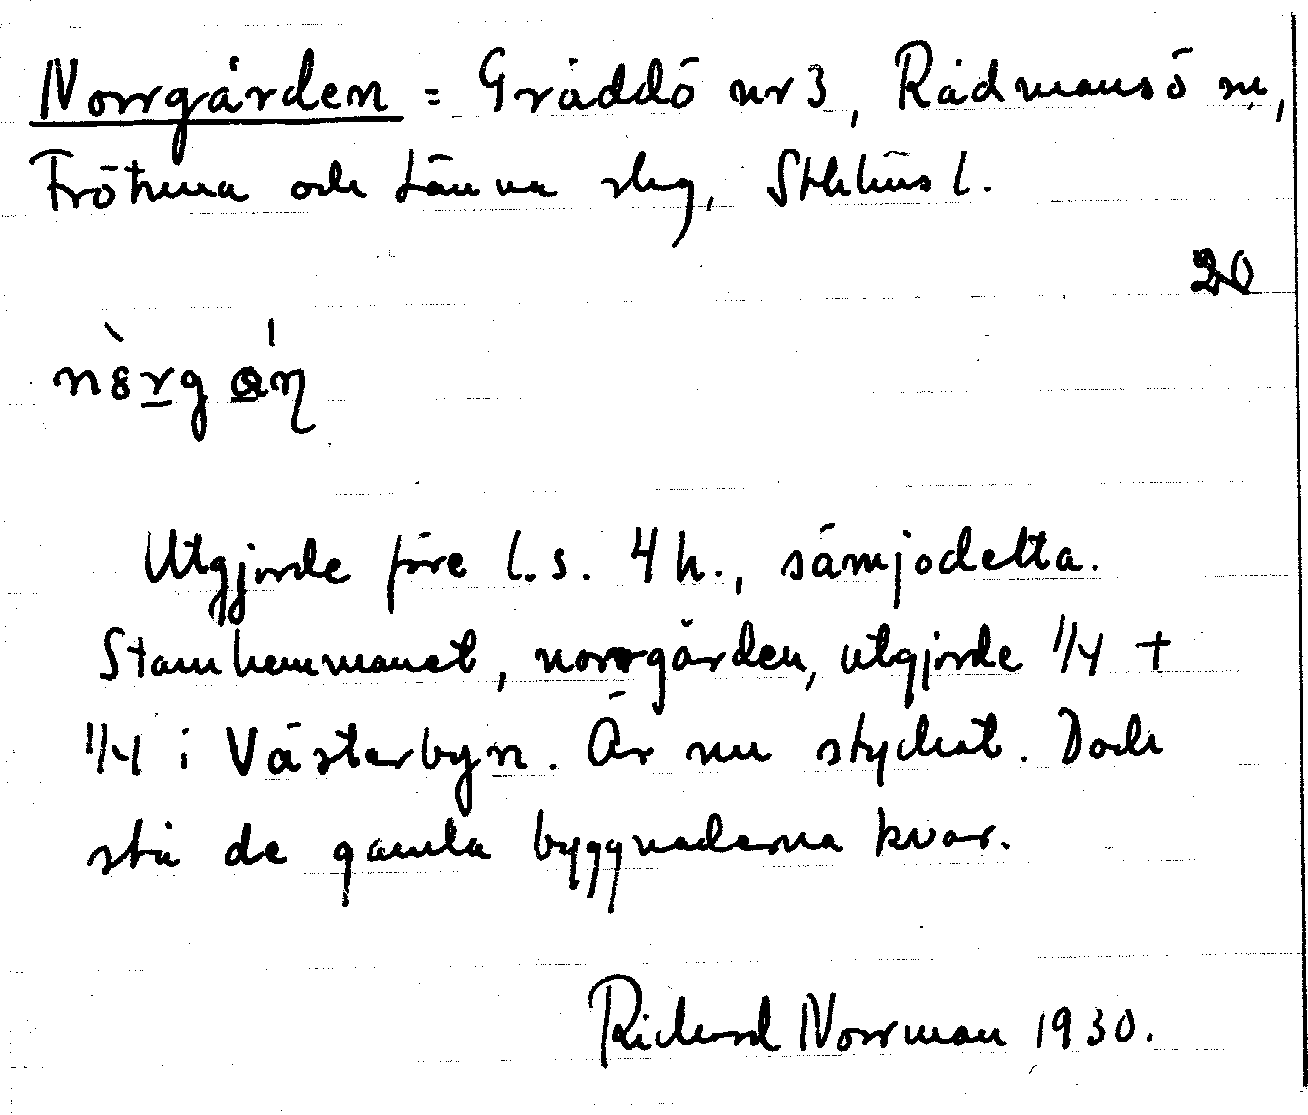 Norrgården = Gräddö nr 3, Rådmansö sn,
Frötuna och Länna slg, Sthlms l.
20
nòrgά̠n
Utgjorde före l.s. 4 h., sämjodelta.
Stamhemmanet, norrgården, utgjorde 1/4 +
1/4 i Västerbyn. Är nu styckat. Dock
stå de gamla byggnaderna kvar.
Richard Norrman 1930.